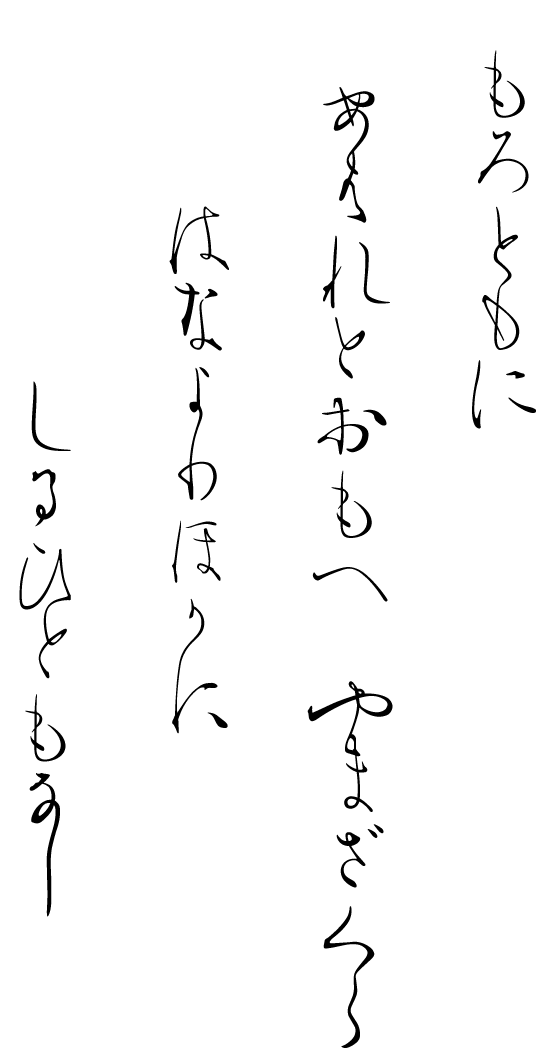 もろともに
あはれとおもへ　やまざくら
はなよりほかに
しるひともなし